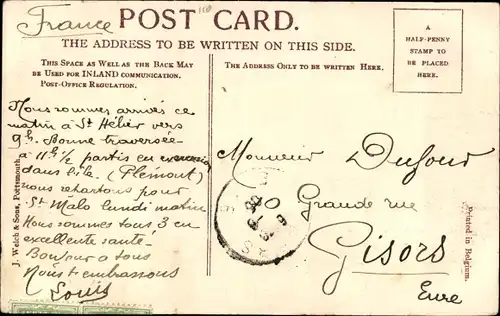 France
POST CARD.
THE ADDRESS TO BE WRITTEN ON THIS SIDE.
A
HALF-PENNY
STAMP TO
BE PLACED
HERE.
THIS SPACE AS WELL AS THE BACK MAY
BE USED FOR INLAND COMMUNICATION.
POST-OFFICE REGULATION.
THE ADDRESS ONLY TO BE WRITTEN HERE.
Nous sommes arrivés ce
matin à St Hélier vers
9h. Bonne traversée
à 11h 1/2 partis en excursion
dans l'île (Plémont)
nous repartons pour
St Malo lundi matin
Nous sommes tous 3 en
excellente santé.
Bonjour à tous
Nous t'embrassons
Louis
Monsieur Dufour
Grande rue
Gisors
Eure
J. Welch & Sons, Portsmouth.
Printed in Belgium.